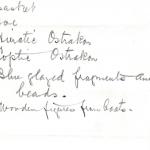 basket
Hieratic Ostrakon
Coptic Ostrakon
Blue glazed fragments and
beads.
Wooden figures from boats.